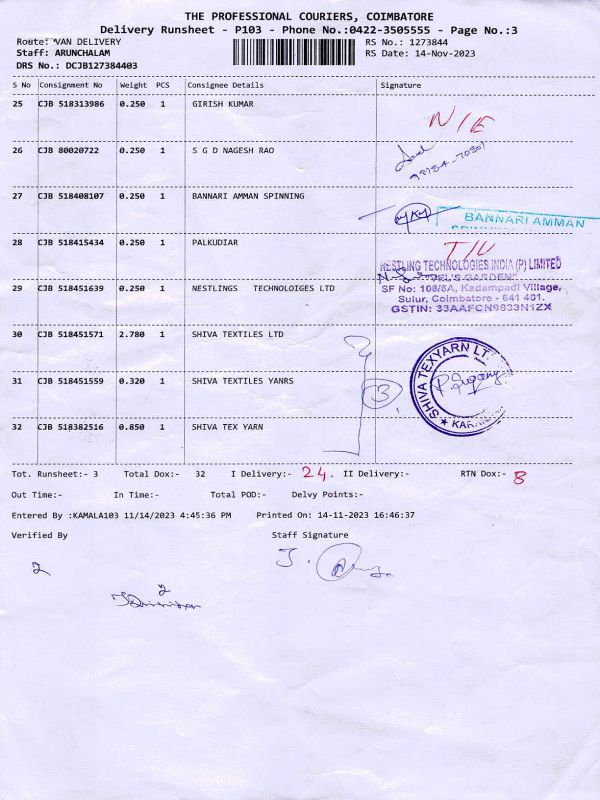 THE PROFESSIONAL COURIERS, COIMBATORE
Delivery Runsheet - P103 - Phone No.:0422-3505555 - Page No.:3
Route: VAN DELIVERY RS No.: 1273844
Staff: ARUNCHALAM RS Date: 14-Nov-2023
DRS No.: DCJB127384403
S No Consignment No Weight PCS Consignee Details Signature
25 CJB 518313986 0.250 1 GIRISH KUMAR
N/E
26 CJB 80020722 0.250 1 S G D NAGESH RAO
27 CJB 518408107 0.250 1 BANNARI AMMAN SPINNING
BANNARI AMMAN
28 CJB 518415434 0.250 1 PALKUDIAR
NESTLING TECHNOLOGIES INDIA (P) LIMITED
29 CJB 518451639 0.250 1 NESTLINGS TECHNOLOIGES LTD
SF No: 108/6A, Kadampadi Village,
Sulur, Coimbatore - 641 401.
GSTIN: 33AAFCN9833N1ZX
30 CJB 518451571 2.780 1 SHIVA TEXTILES LTD
31 CJB 518451559 0.320 1 SHIVA TEXTILES YANRS
3
SHIVA TEXYARN LT
32 CJB 518382516 0.850 1 SHIVA TEX YARN
Tot. Runsheet:- 3 Total Dox:- 32 I Delivery:- 24. II Delivery:- RTN Dox:- 8
Out Time:- In Time:- Total POD:- Delvy Points:-
Entered By :KAMALA103 11/14/2023 4:45:36 PM Printed On: 14-11-2023 16:46:37
Verified By Staff Signature